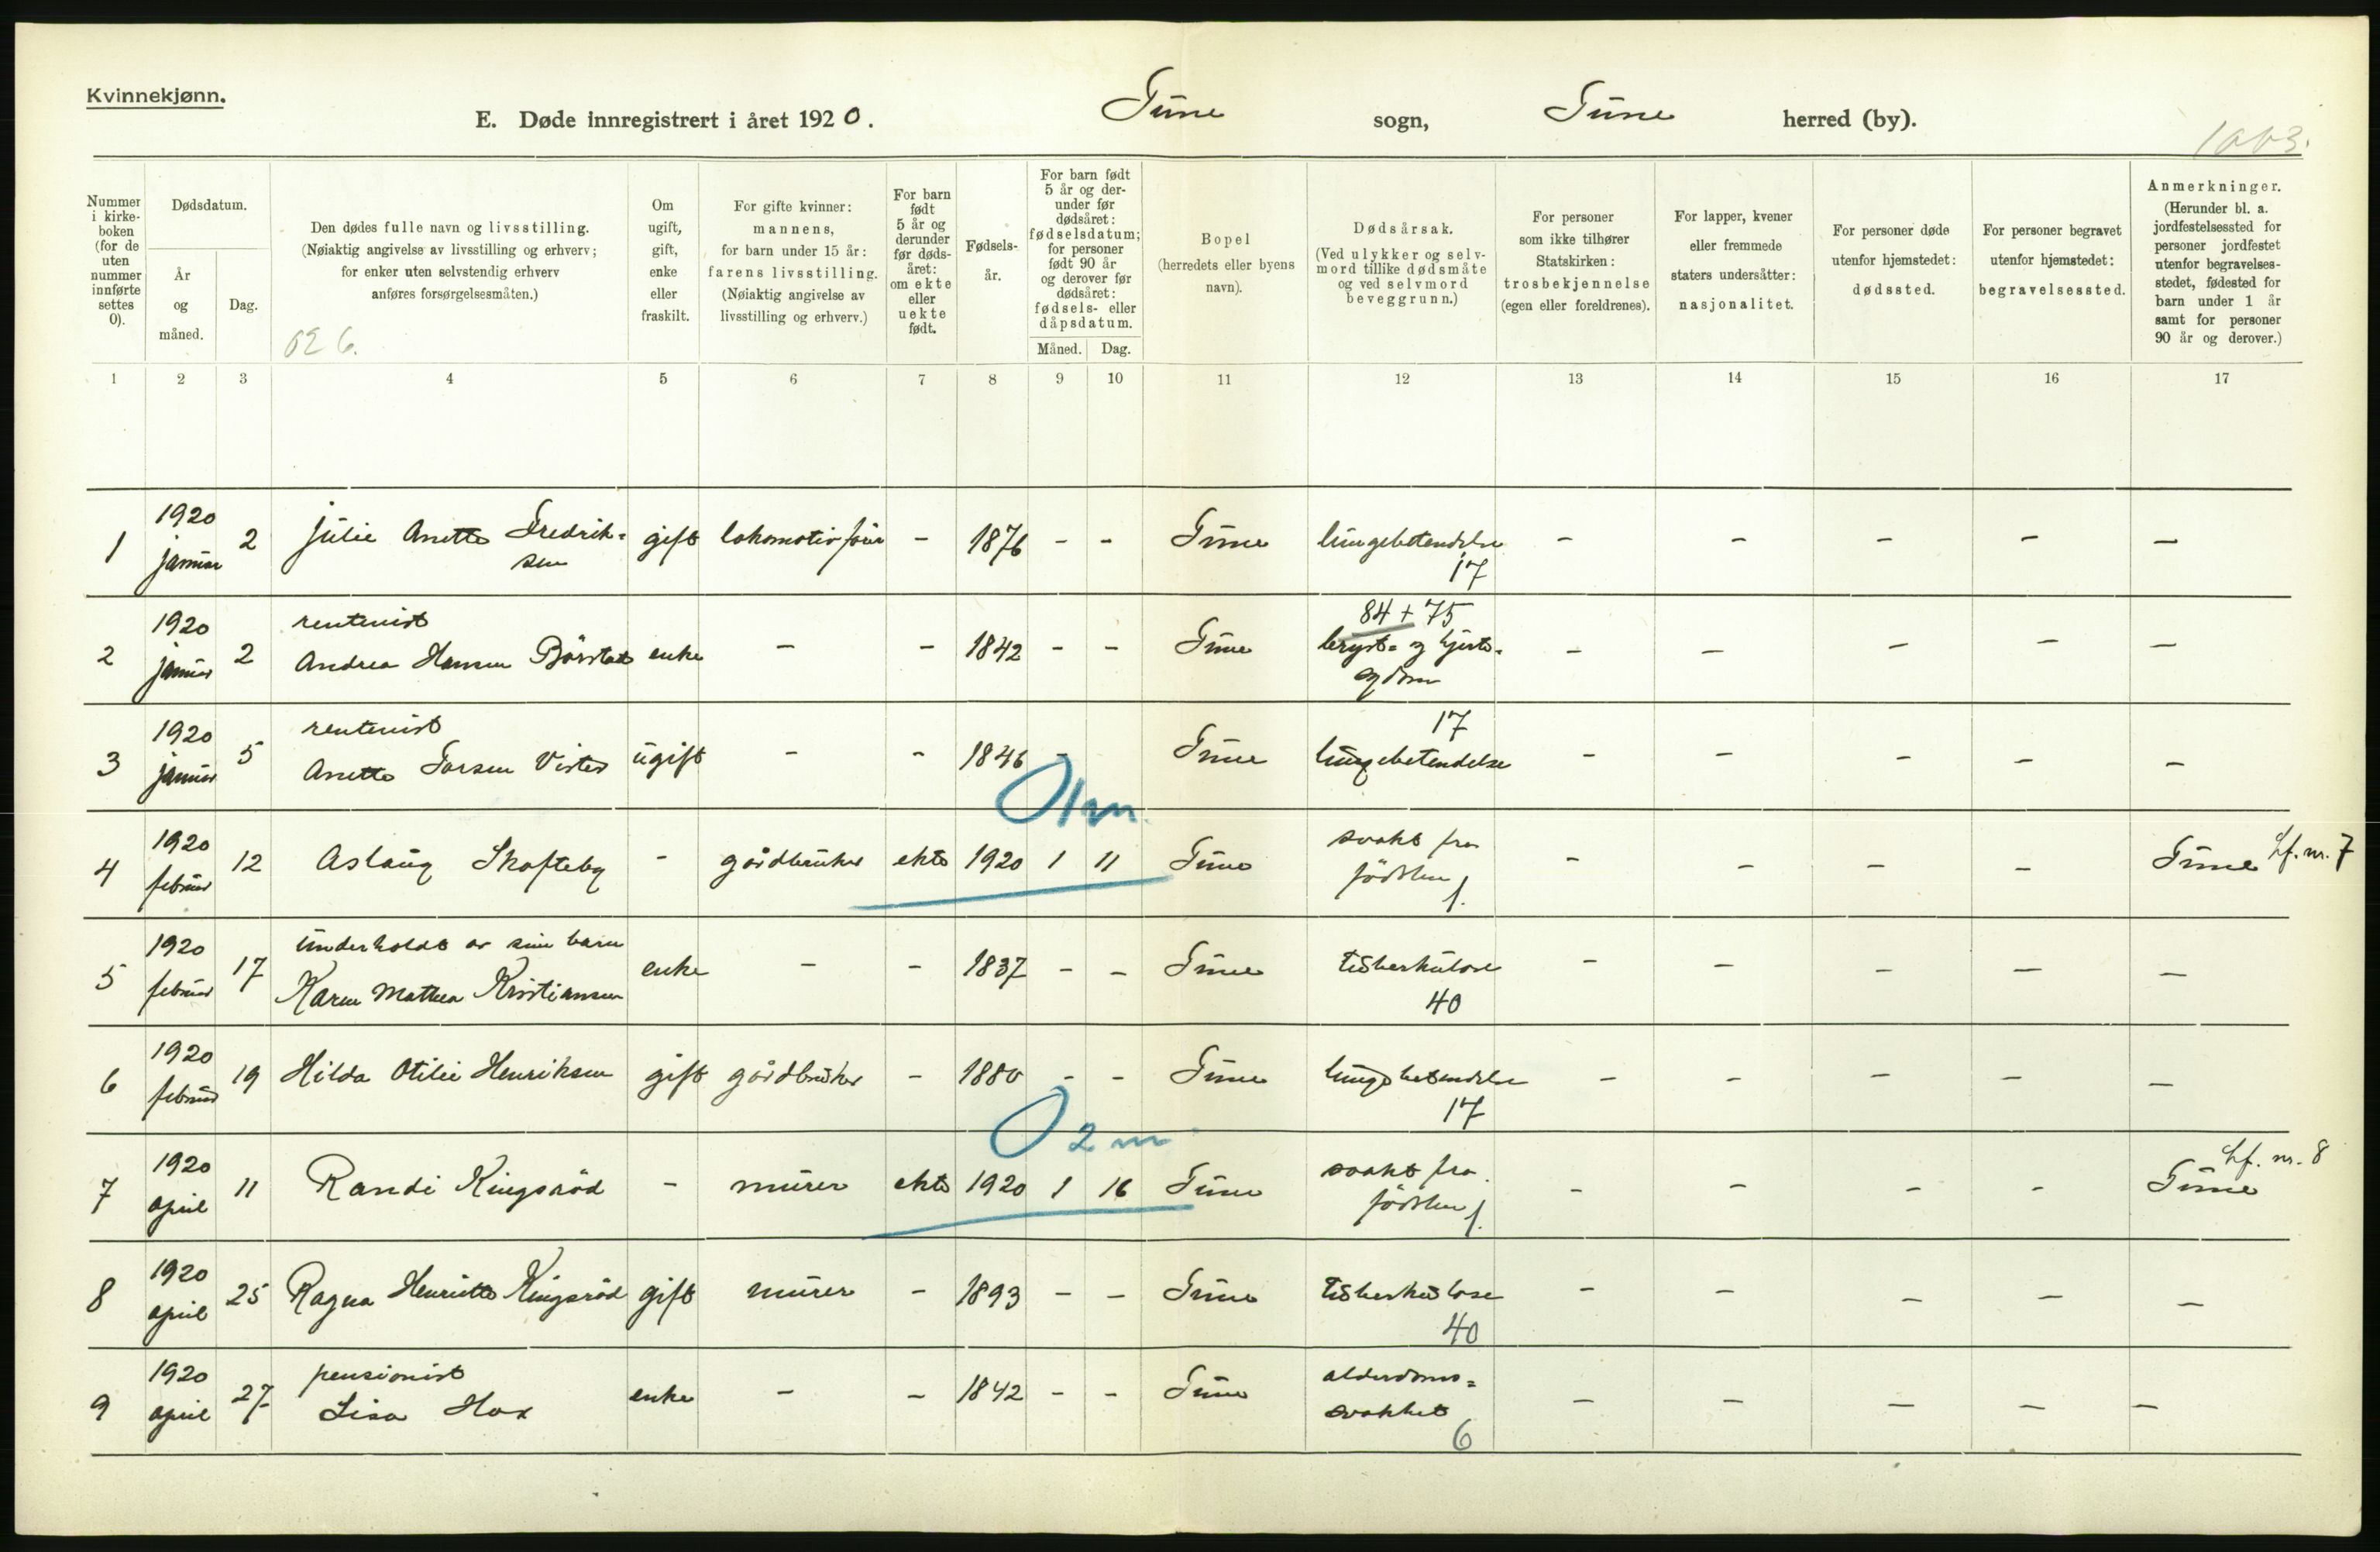 Kvinnekjønn.
E. Døde innregistrert i året 1920. Tune sogn, Tune herred (by).
Nummer i kirkeboken (for de uten nummer innførte settes 0).
Dødsdatum.
År og måned.
Dag.
Den dødes fulle navn og livsstilling.
(Nøiaktig angivelse av livsstilling og erhverv;
for enker uten selvstendig erhverv
anføres forsørgelsesmåten.)
Om ugift, gift, enke eller fraskilt.
For gifte kvinner: mannens, for barn under 15 år: farens livsstilling. (Nøiaktig angivelse av livsstilling og erhverv.)
For barn født 5 år og derunder før dødsåret: om ekte eller uekte født.
Fødselsår.
For barn født 5 år og derunder før dødsåret: fødselsdatum; for personer født 90 år og derover før dødsåret: fødsels- eller dåpsdatum.
Måned. Dag.
Bopel (herredets eller byens navn).
Dødsårsak. (Ved ulykker og selvmord tillike dødsmåte og ved selvmord beveggrunn.)
For personer som ikke tilhører Statskirken: trosbekjennelse (egen eller foreldrenes).
For lapper, kvener eller fremmede staters undersåtter: nasjonalitet.
For personer døde utenfor hjemstedet: dødssted.
For personer begravet utenfor hjemstedet: begravelsessted.
Anmerkninger. (Herunder bl. a. jordfestelsessted for personer jordfestet utenfor begravelsesstedet, fødested for barn under 1 år samt for personer 90 år og derover.)
1 2 3 4 5 6 7 8 9 10 11 12 13 14 15 16 17
1 1920 januar 2 Julie Anette Fredriksen gift lokomotivfører - 1876 - - Tune lungebetendelse 17 - - - - -
2 1920 januar 2 rentenist Andrea Hansen Börstad enke - - 1842 - - Tune 84 + 75 bryst= og hjertesygdom - - - - -
3 1920 januar 5 rentenist Anette Larsen Visted ugift - - 1846 - Tune 17 lungebetendelse - - - - -
0 1 m.
4 1920 februar 12 Aslaug Skofteby - gårdbruker ekte 1920 1 11 Tune svakt fra födslen 1. - - - - Tune Lf. nr. 7
5 1920 februar 17 underholdt av sine barn Karen Mathea Kristiansen enke - - 1837 - - Tune tuberkulose 40 - - - - -
6 1920 februar 19 Hilda Otilie Henriksen gift gårdbruker - 1880 - - Tune lungebetendelse 17 - - - - -
0 2 m
7 1920 april 11 Randi Kingsröd - murer ekte 1920 1 16 Tune svakt fra födslen 1. - - - - Tune Lf. nr. 8
8 1920 april 25 Ragna Henriette Kingsröd gift murer - 1893 - - Tune tuberkulose 40 - - - - -
9 1920 april 27 pensionist Lisa Hox enke - - 1842 - - Tune alderdoms=svakhet 6 - - - - -